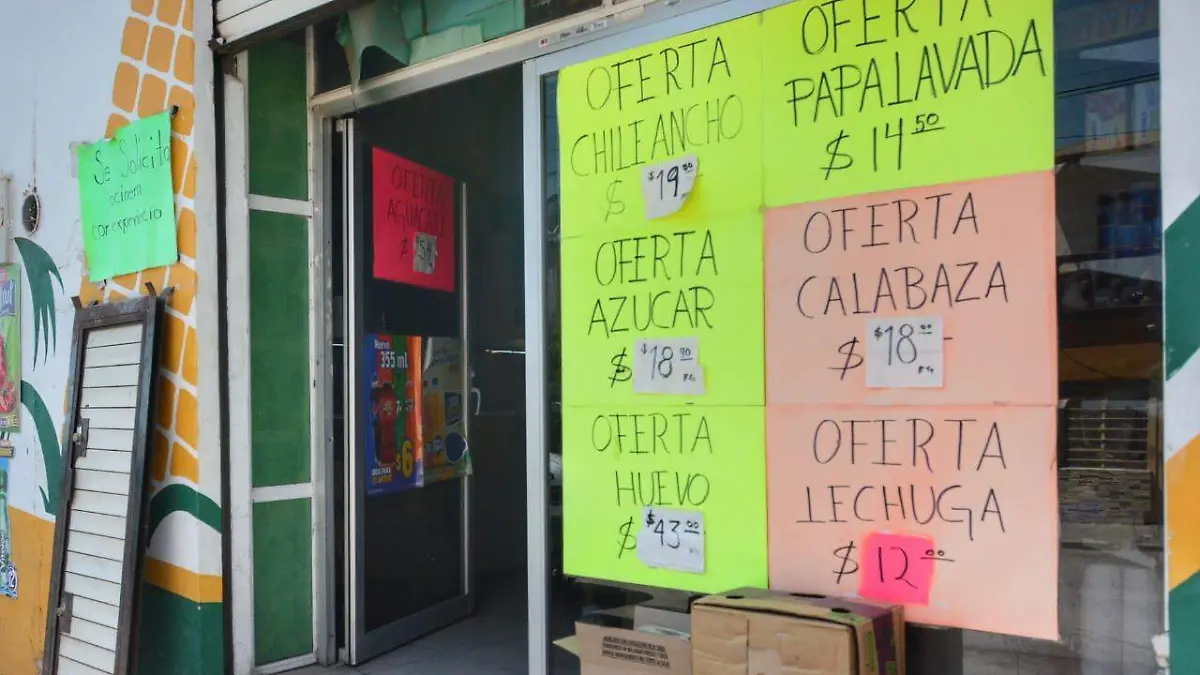 Se Solicita
cocinera
con experiencia
OFERTA
AGUACATE
$
Nuevo
355 ml
$6
OFERTA
CHILE ANCHO
$ $19.50
OFERTA
PAPA LAVADA
$14.50
OFERTA
AZUCAR
$ $18.90 KG
OFERTA
CALABAZA
$ $18.00 KG
OFERTA
HUEVO
$ $43.00
OFERTA
LECHUGA
$12.00